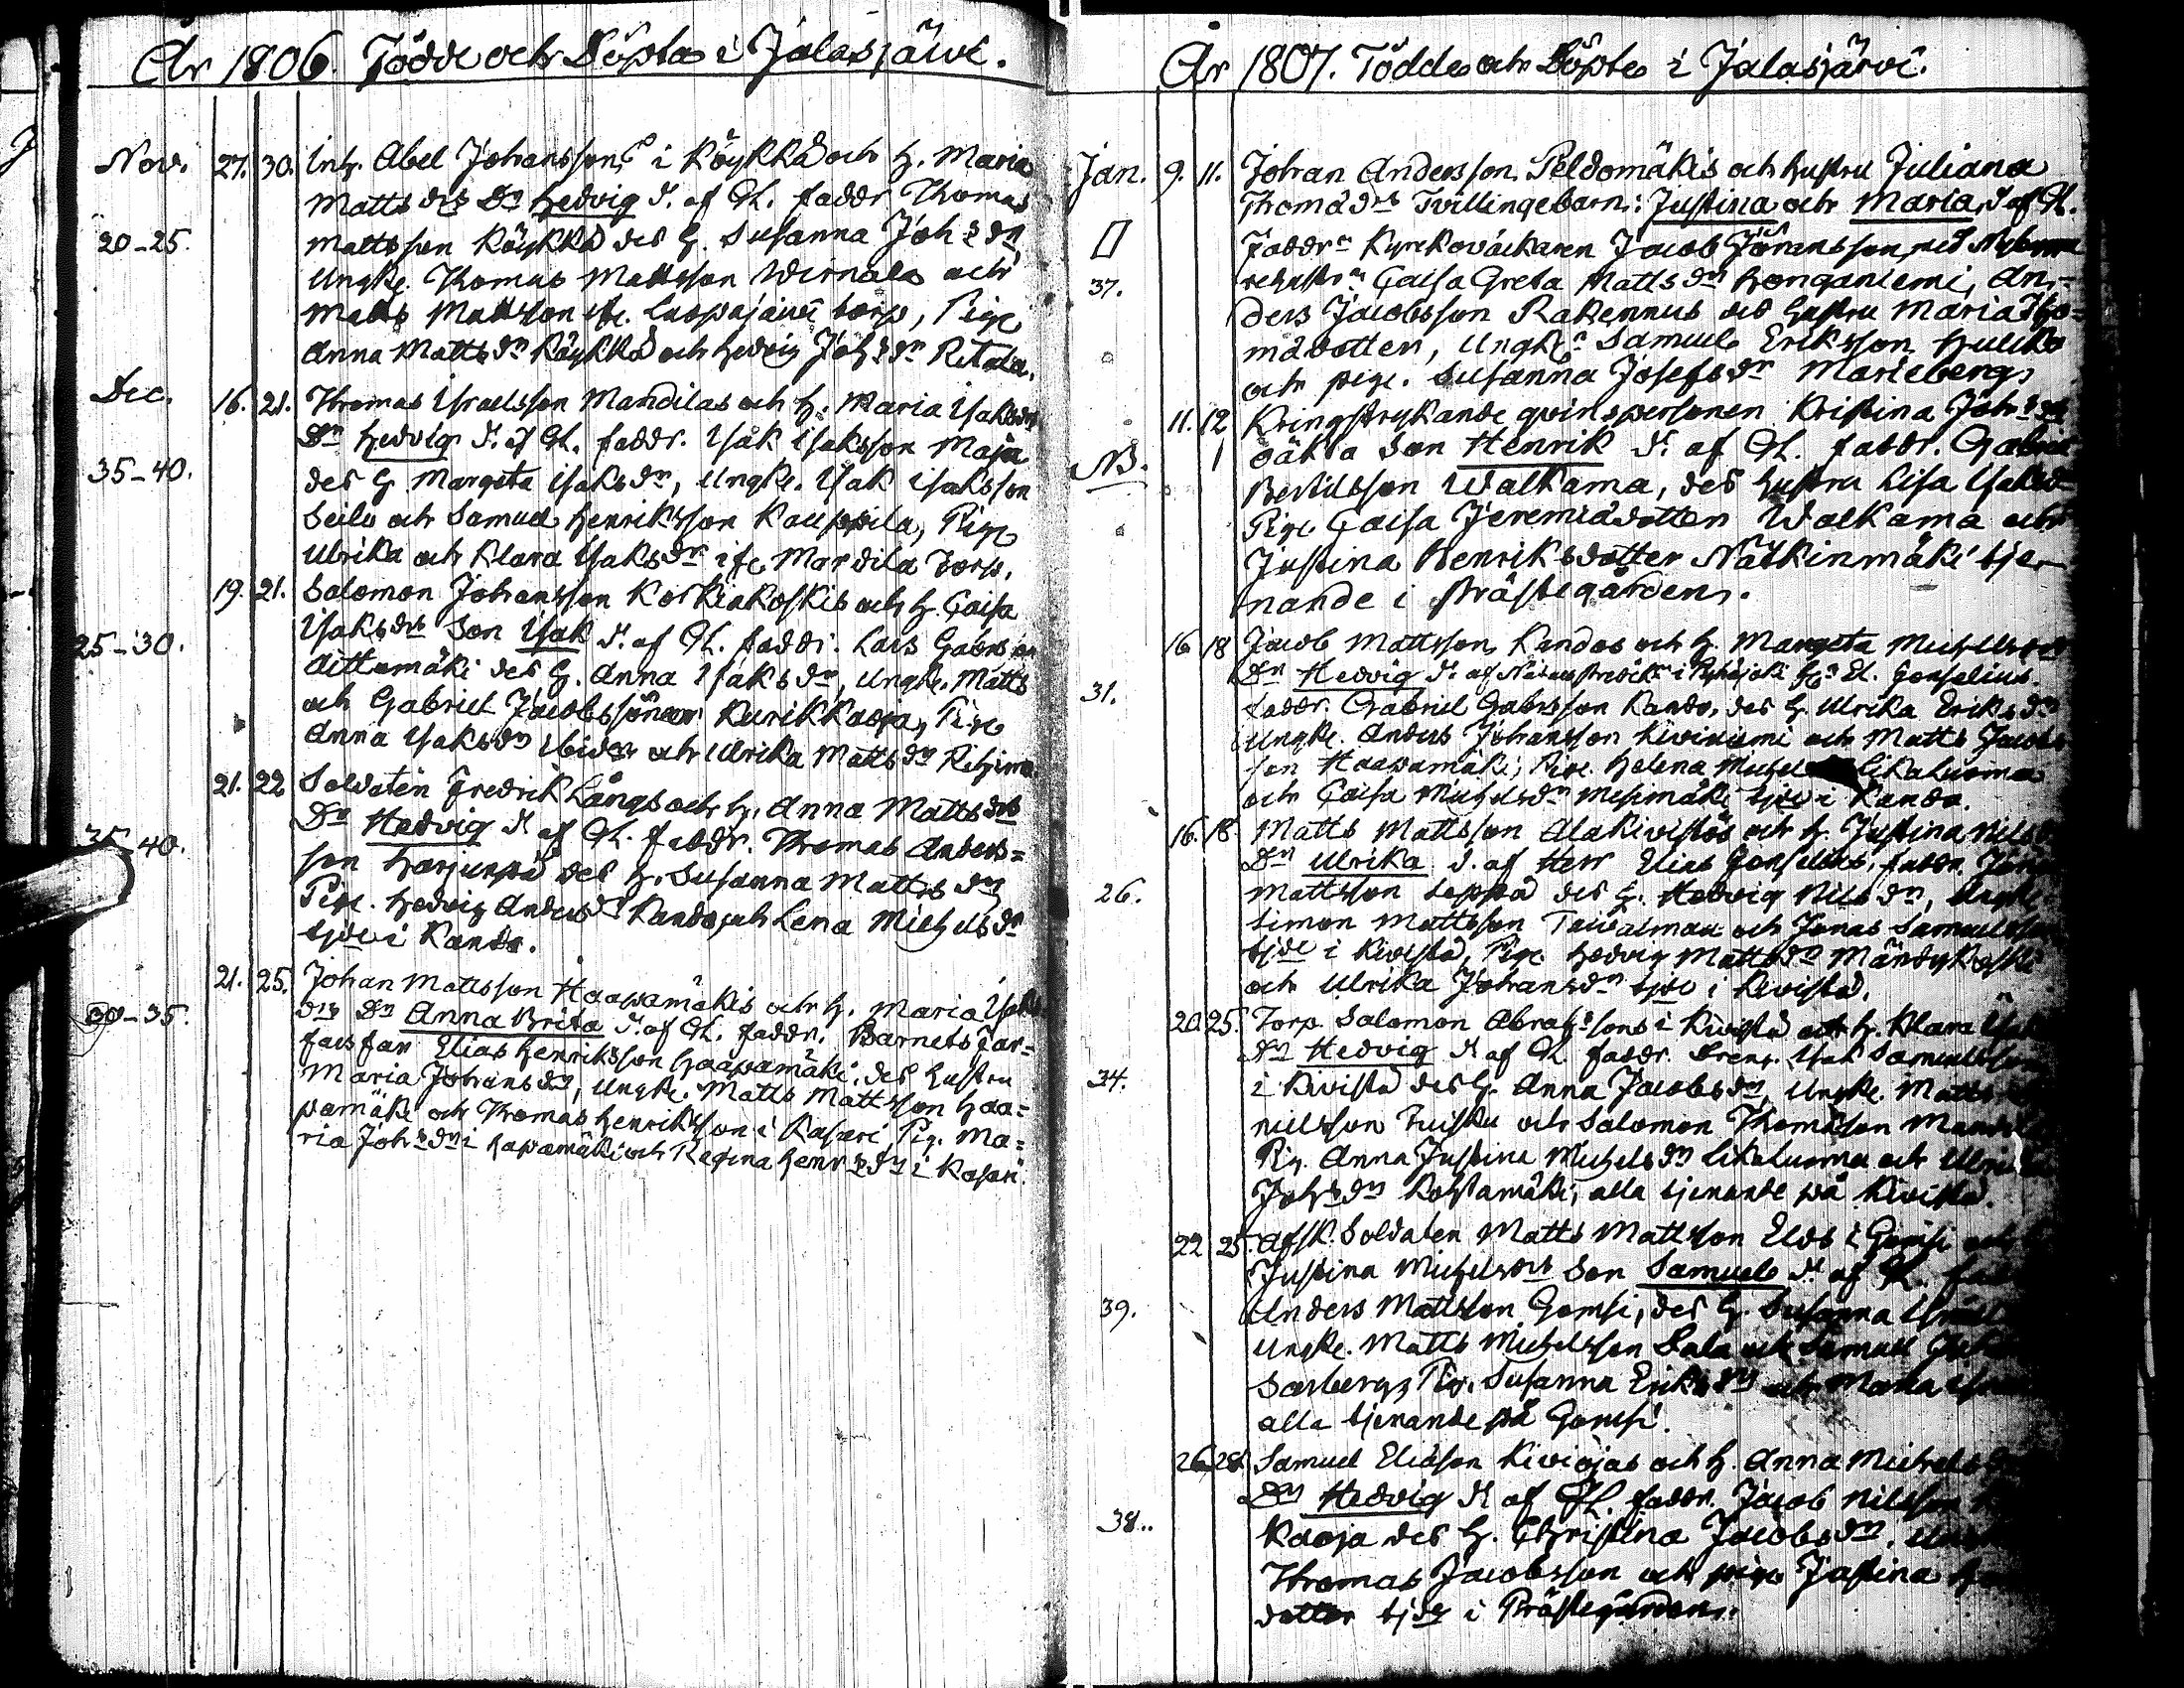 År 1806. Födde och Döpta i Jalasjärvi.
Nov. 27. 30. Inh. Abel Johanssons i Röykkä och h. Maria
Matts drs Dr Hedvig d. af Gl. faddr Thomas
20-25. Mattsson Röykkä des h. Susanna Joh:s dr
Ungk. Thomas Mattsson Wirnala och
Matts Mattsson fr. Luopajärvi torp, Pig.
Anna Matts dr Röykkä och Hedvig Joh:s dr Ritola.
Dec. 16. 21. Thomas Israelsson Mandilas och h. Maria Isaksdrs
Dr Hedvig d. af Gl. faddr. Isak Isaksson Maja
35-40. des h. Margeta Isaks dr, Ungk. Isak Isaksson
Seilu och Samuel Henriksson Kauppila, Pig.
Ulrika och Klara Isaks dr ifr. Mandila Torp.
19. 21. Salomon Johansson Koskiakoskis och h. Caisa
Isaks drs Son Isak d. af Gl. faddr. Lars Gabrsson
25-30. Aittomäki des h. Anna Isaks dr, Ungk. Matts
och Gabriel Jacobssöner Kurikkaoja, Pig.
Anna Isaks dr ibid. och Ulrika Matts dr Rihima
21. 22 Soldaten Fredrik Långs och h. Anna Matts drs
Dr Hedvig d. af Gl. faddr. Thomas Anders=
35-40. son Harjunpä des h. Susanna Matts dr
Pig. Hedvig Anders dr Kando och Lena Michels dr
tjde i Kando.
21. 25. Johan Mattsson Haapamäkis och h. Maria Isaks
drs Dr Anna Brita d. af Gl. faddr. Barnets far=
30-35. fars far Elias Henriksson Haapamäki, des hustru
Maria Johans dr, Ungk. Matts Mattsson Haa=
pamäki och Thomas Henriksson i Kasari, Pig. Ma=
ria Joh:s dr i Hapamäki och Regina Henr:s dr i Kasari.
År 1807. Födde och Döpte i Jalasjärvi.
Jan. 9. 11. Johan Andersson Peldomäkis och hustru Juliana
Thomä drs Tvillingebarn: Justina och Maria, d af Gl.
Faddr Kyrkoväktaren Jacob Göransson, med
Caisa Greta Matts dr Honganiemi, An=
37. ders Jacobsson Rakennus des hustru Maria Tho=
mädotter, Ungk. Samuel Eriksson Hulko
och pig. Susanna Josefs dr Marieberg.
11. 12 Kringstrykande qvinspersonen Kristina Joh:s drs
NB. oäkta Son Henrik d. af Gl. faddr. Gabriel
Bertilsson Walkama, des hustru Lisa Isaksdr
Pig. Caisa Jeremiädotter Walkama och
Justina Henriksdotter Nätkinmäki tje-
nande i Prästegården.
16 18 Jacob Mattsson Kandos och h. Margeta Michelsdrs
31. Dr Hedvig d. af Hr El. Gonselius.
faddr. Gabriel Gabrsson Kando, des h. Ulrika Eriks dr
Ungk. Anders Johansson Kiviniemi och Matts Jacobs
son Haapamäki, Pig. Helena Michels Likaluoma
och Caisa Michels dr Mesimäki tjde i Kando.
16. 18. Matts Mattsson Alakivistös och h. Justina Nilsdrs
Dr Ulrika d. af Herr Elias Gonselius, faddr.
26. Mattsson Seppä des h. Hedvig Nils dr, Ungk.
Simon Mattsson och Jonas Samuelsson
tjde i Kivistö, Pig. Hedvig Matts dr Mändykoski
och Ulrika Johans dr tjde i Kivistö.
20. 25. Torp. Salomon Abrah:sons i Kivistö och h. Klara
Dr Hedvig d. af Gl. faddr. Dreng. Isak Samuelsson
34. i Kivistö des h. Anna Jacobs dr, Ungk. Matts
nielsson Tuisku och Salomon Thomäson Mandila
Pig. Anna Justina Michels dr Likaluoma och Ulrika
Joh:s dr Kohtamäki, alla tjenande på Kivistö.
22 25. Afsk. Soldaten Matts Mattsson Elds i Gomsi och
Justina Michelsdrs Son Samuel d. af Gl.
39. Anders Mattsson Gomsi, des h. Susanna
Ungk. Matts Michelsson Sala och Samuel
Sarberg, Pig. Susanna Eriks dr och Maria
alla tjenande på Gomsi.
26 28. Samuel Eliäson Kiviojas och h. Anna Michels
Dr Hedvig d. af Gl. faddr. Jacob Nilsson
38. kaoja des h. Christina Jacobs dr,
Thomas Jacobsson och piga Justina
dotter tjde i Prästegården.